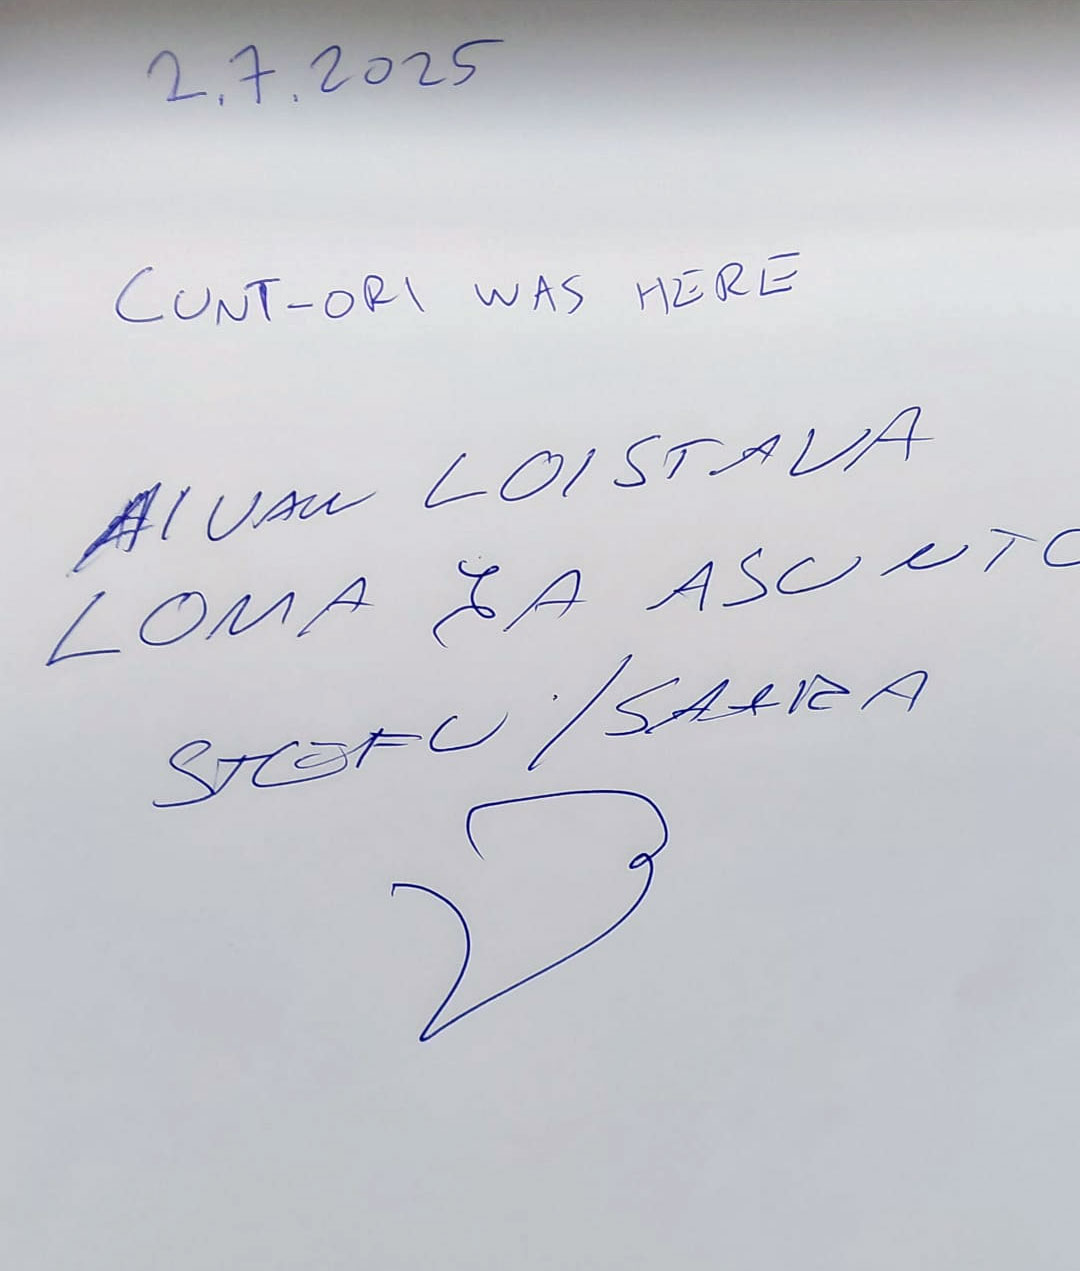 2.7.2025
CUNT-ORI WAS HERE
AIVAN LOISTAVA
LOMA JA ASUNTO
/SAARA